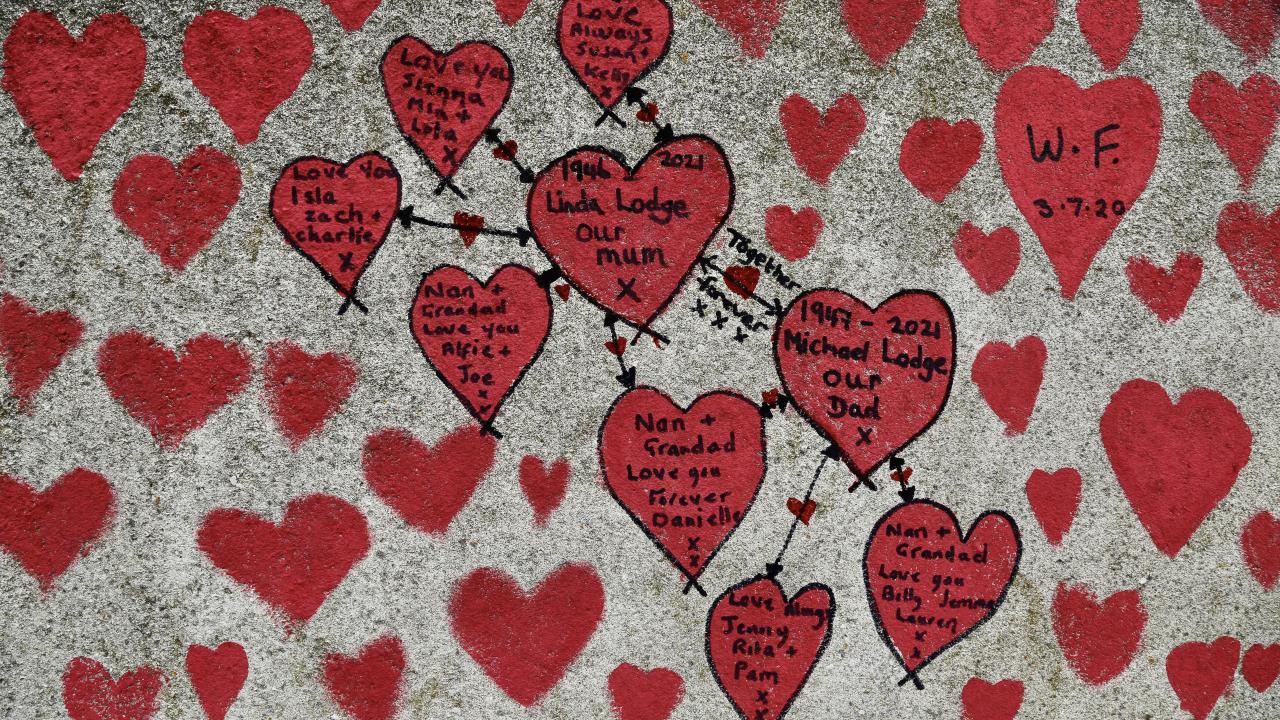 Love
Always
Susan +
Kelly
x
Love you
Sienna
Mia +
Lola
x
Love You
Isla
Zach +
charlie
x
1946 2021
Linda Lodge
our
mum
x
Together
forever
x x x
Nan +
Grandad
Love you
Alfie +
Joe
x
x
1947 - 2021
Michael Lodge
our
Dad
x
Nan +
Grandad
Love you
Forever
Danielle
x
x
Nan +
Grandad
Love you
Billy Jemma
Lauren
x
x
Love Always
Jenny
Rita +
Pam
x
x
W.F.
3.7.20